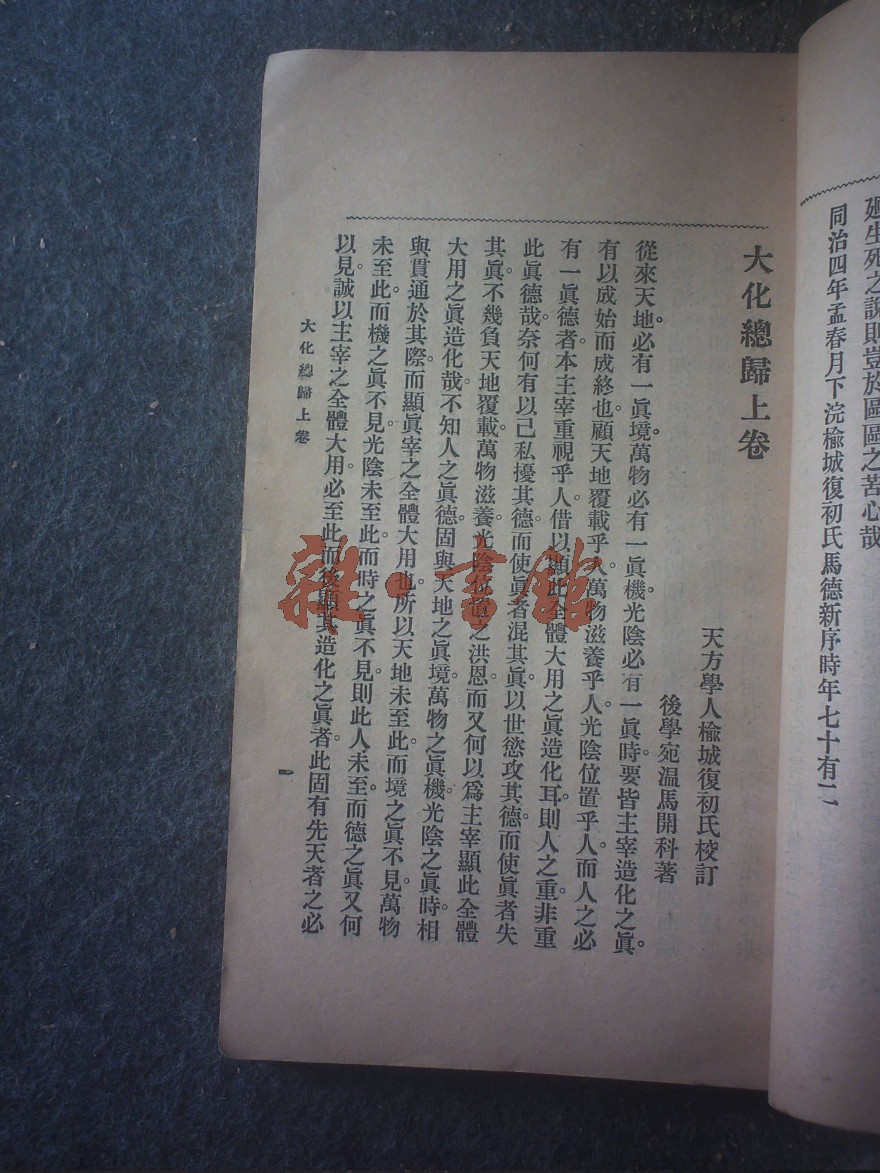 廻生死之說則豈於區區之苦心哉
同治四年孟春月下浣榆城復初氏馬德新序時年七十有二
大化總歸上卷
天方學人榆城復初氏校訂
後學宛温馬開科著
從來天地必有一眞境。萬物必有一眞機。光陰必有一眞時。要皆主宰造化之眞。
有以成始而成終也。顧天地覆載乎人。萬物滋養乎人。光陰位置乎人。而人之必
有一眞德者。本主宰重視乎人。借以顯此全體大用之眞造化耳。則人之重。非重
此眞德哉。奈何有以己私擾其德。而使眞者混其眞。以世慾攻其德。而使眞者失
其眞。不幾負天地覆載。萬物滋養。光陰位置之洪恩。而又何以爲主宰顯此全體
大用之眞造化哉。不知人之眞德。固與天地之眞境。萬物之眞機。光陰之眞時。相
與貫通於其際。而顯眞宰之全體大用也。所以天地未至此。而境之眞不見。萬物
未至此。而機之眞不見。光陰未至此。而時之眞不見。則此人未至。而德之眞又何
以見。誠以主宰之全體大用。必至此而後顯其造化之眞者。此固有先天者之必
大化總歸上卷
一
雜·書館